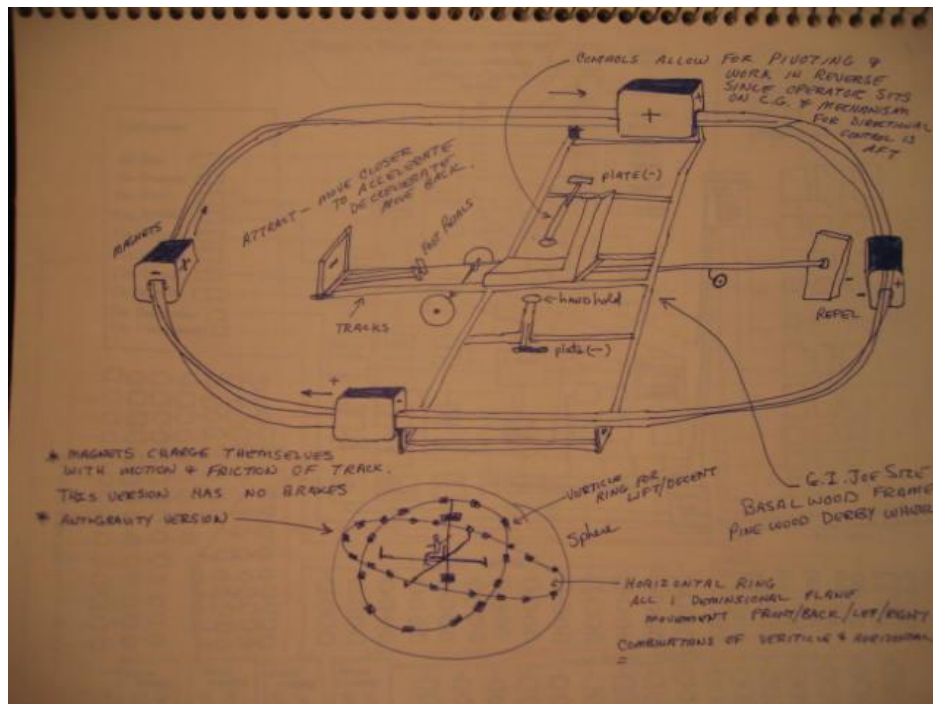 CONTROLS ALLOW FOR PIVOTING &
WORK IN REVERSE
SINCE OPERATOR SITS
ON C.G. & MECHANISM
FOR DIRECTIONAL
CONTROL IS
AFT
+
+
ATTRACT - MOVE CLOSER
TO ACCELERATE
DECELERATE
MOVE BACK.
PLATE(-)
MAGNETS
-
+
FOOT PEDALS
-
-
-
+
REPEL
TRACKS
handhold
plate(-)
+
-
* MAGNETS CHARGE THEMSELVES
WITH MOTION & FRICTION OF TRACK.
THIS VERSION HAS NO BRAKES
* ANTIGRAVITY VERSION
VERTICLE
RING FOR
LIFT/DECENT
Sphere
G.I. JOE SIZE
BASAL WOOD FRAME
PINE WOOD DERBY WHEEL
HORIZONTAL RING
ALL 1 DEMINSIONAL PLANE
MOVEMENT FRONT/BACK/LEFT/RIGHT
COMBINATIONS OF VERITICLE & HORIZONTAL
=